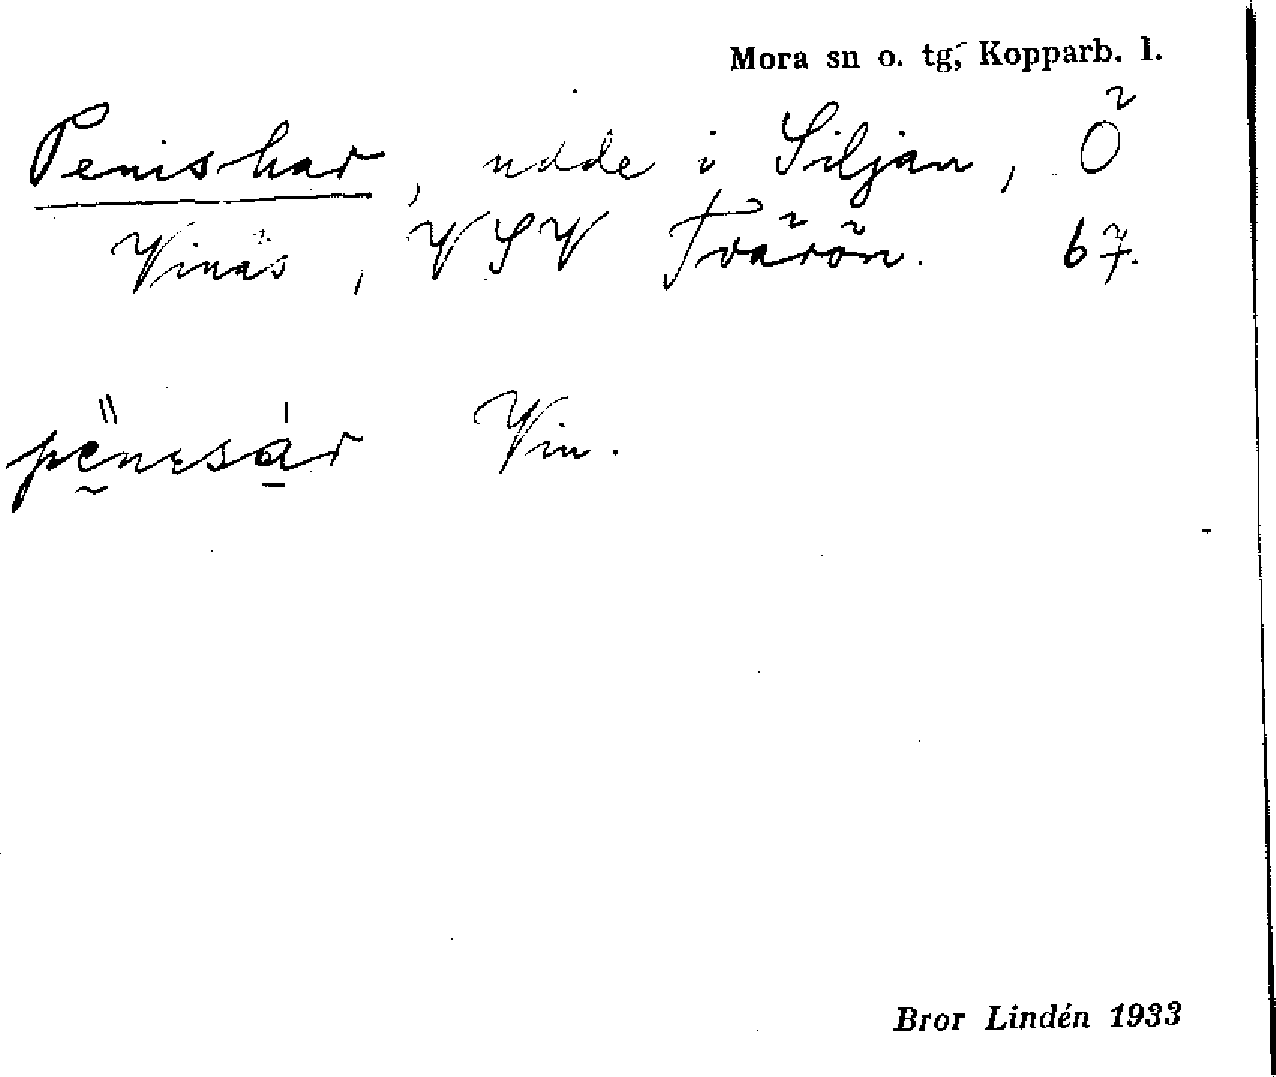 Mora sn o. tg, Kopparb. l.
Penishar, udde i Siljan, Ö
Vinäs, VSV Tvärön. 67.
Vin.
Bror Lindén 1933